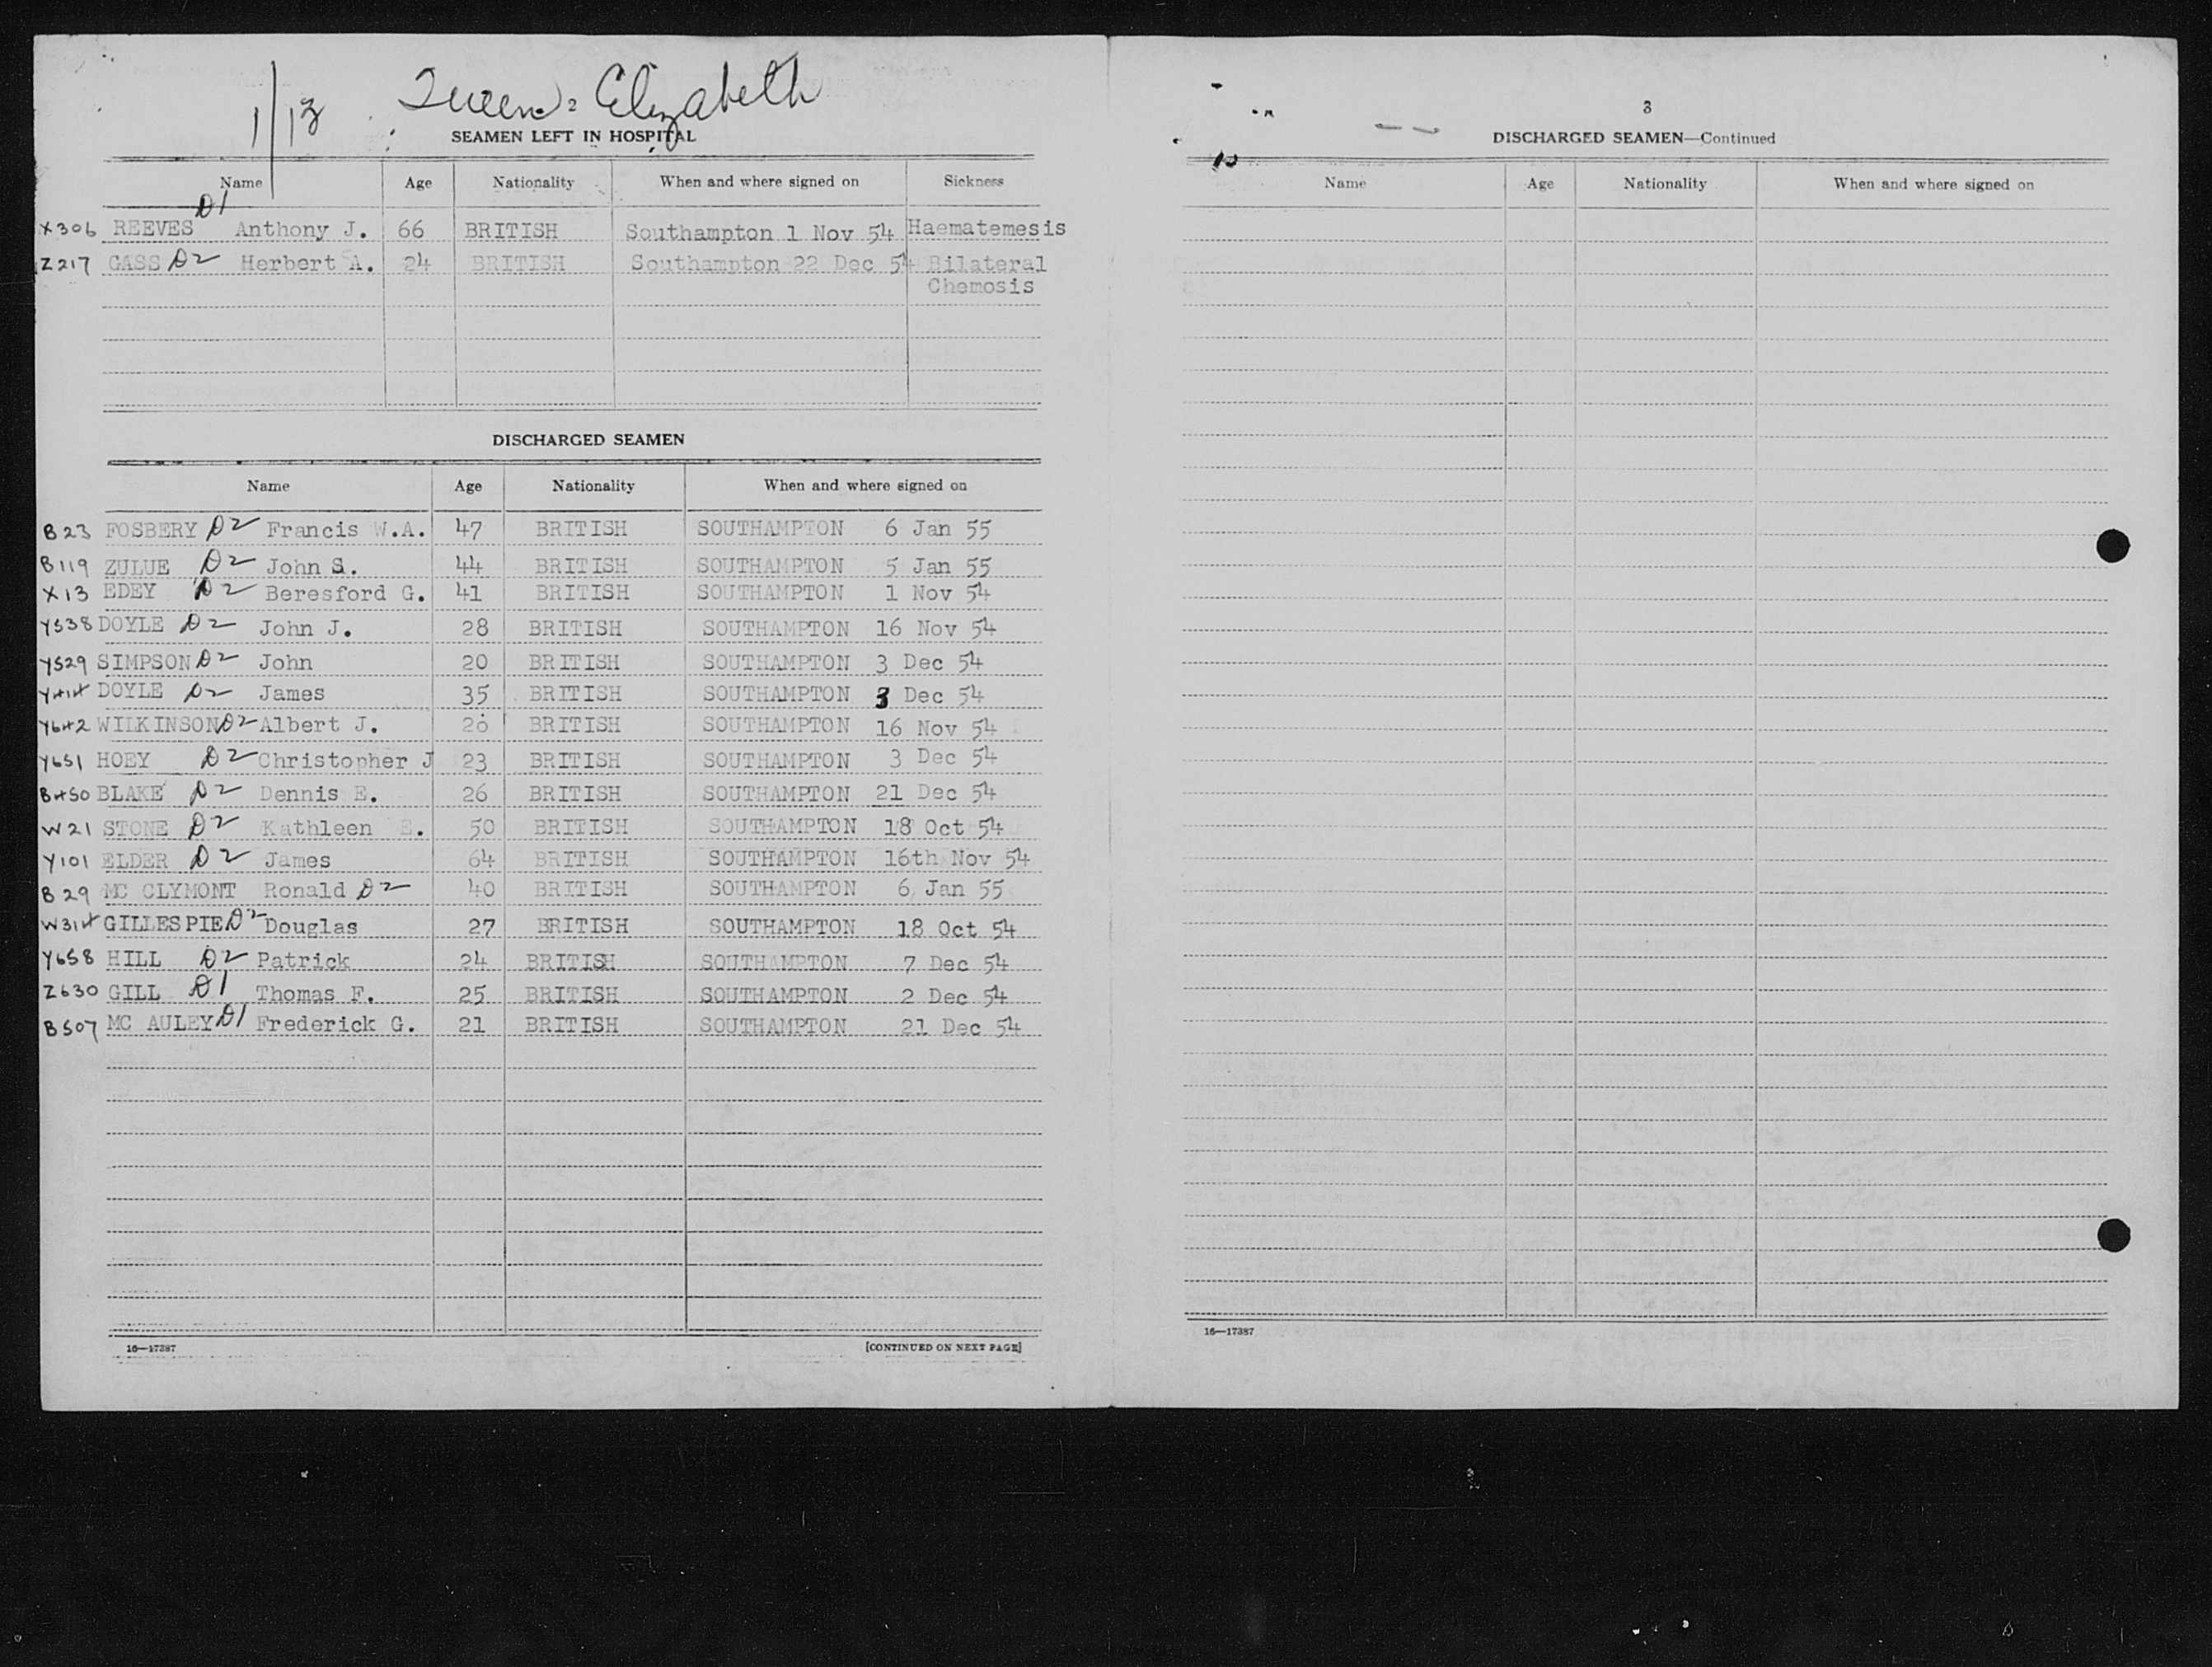 1/13 Queen Elizabeth
SEAMEN LEFT IN HOSPITAL
Name Age Nationality When and where signed on Sickness
X306 REEVES D1 Anthony J. 66 BRITISH Southampton 1 Nov 54 Haematemesis
Z217 GASS D2 Herbert A. 24 BRITISH Southampton 22 Dec 54 Bilateral
Chemosis
DISCHARGED SEAMEN
Name Age Nationality When and where signed on
B23 FOSBERY D2 Francis W.A. 47 BRITISH SOUTHAMPTON 6 Jan 55
B119 ZULUE D2 John S. 44 BRITISH SOUTHAMPTON 5 Jan 55
X13 EDEY D2 Beresford G. 41 BRITISH SOUTHAMPTON 1 Nov 54
Y538 DOYLE D2 John J. 28 BRITISH SOUTHAMPTON 16 Nov 54
Y529 SIMPSON D2 John 20 BRITISH SOUTHAMPTON 3 Dec 54
Y414 DOYLE D2 James 35 BRITISH SOUTHAMPTON 3 Dec 54
Y642 WILKINSON D2 Albert J. BRITISH SOUTHAMPTON 16 Nov 54
Y651 HOEY D2 Christopher J 23 BRITISH SOUTHAMPTON 3 Dec 54
B450 BLAKE D2 Dennis E. 26 BRITISH SOUTHAMPTON 21 Dec 54
W21 STONE D2 Kathleen E. 50 BRITISH SOUTHAMPTON 18 Oct 54
Y101 ELDER D2 James 64 BRITISH SOUTHAMPTON 16th Nov 54
B29 MC CLYMONT Ronald D2 40 BRITISH SOUTHAMPTON 6 Jan 55
W314 GILLESPIE D2 Douglas 27 BRITISH SOUTHAMPTON 18 Oct 54
Y658 HILL D2 Patrick 24 BRITISH SOUTHAMPTON 7 Dec 54
Z630 GILL D1 Thomas F. 25 BRITISH SOUTHAMPTON 2 Dec 54
B507 MC AULEY D1 Frederick G. 21 BRITISH SOUTHAMPTON 21 Dec 54
16—17387 [CONTINUED ON NEXT PAGE]
3
DISCHARGED SEAMEN—Continued
Name Age Nationality When and where signed on
16—17387